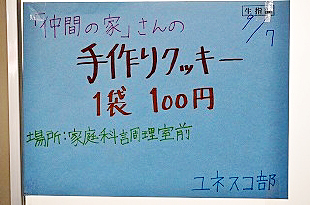 「仲間の家」さんの
9/7
手作りクッキー
1袋 100円
場所:家庭科調理室前
ユネスコ部